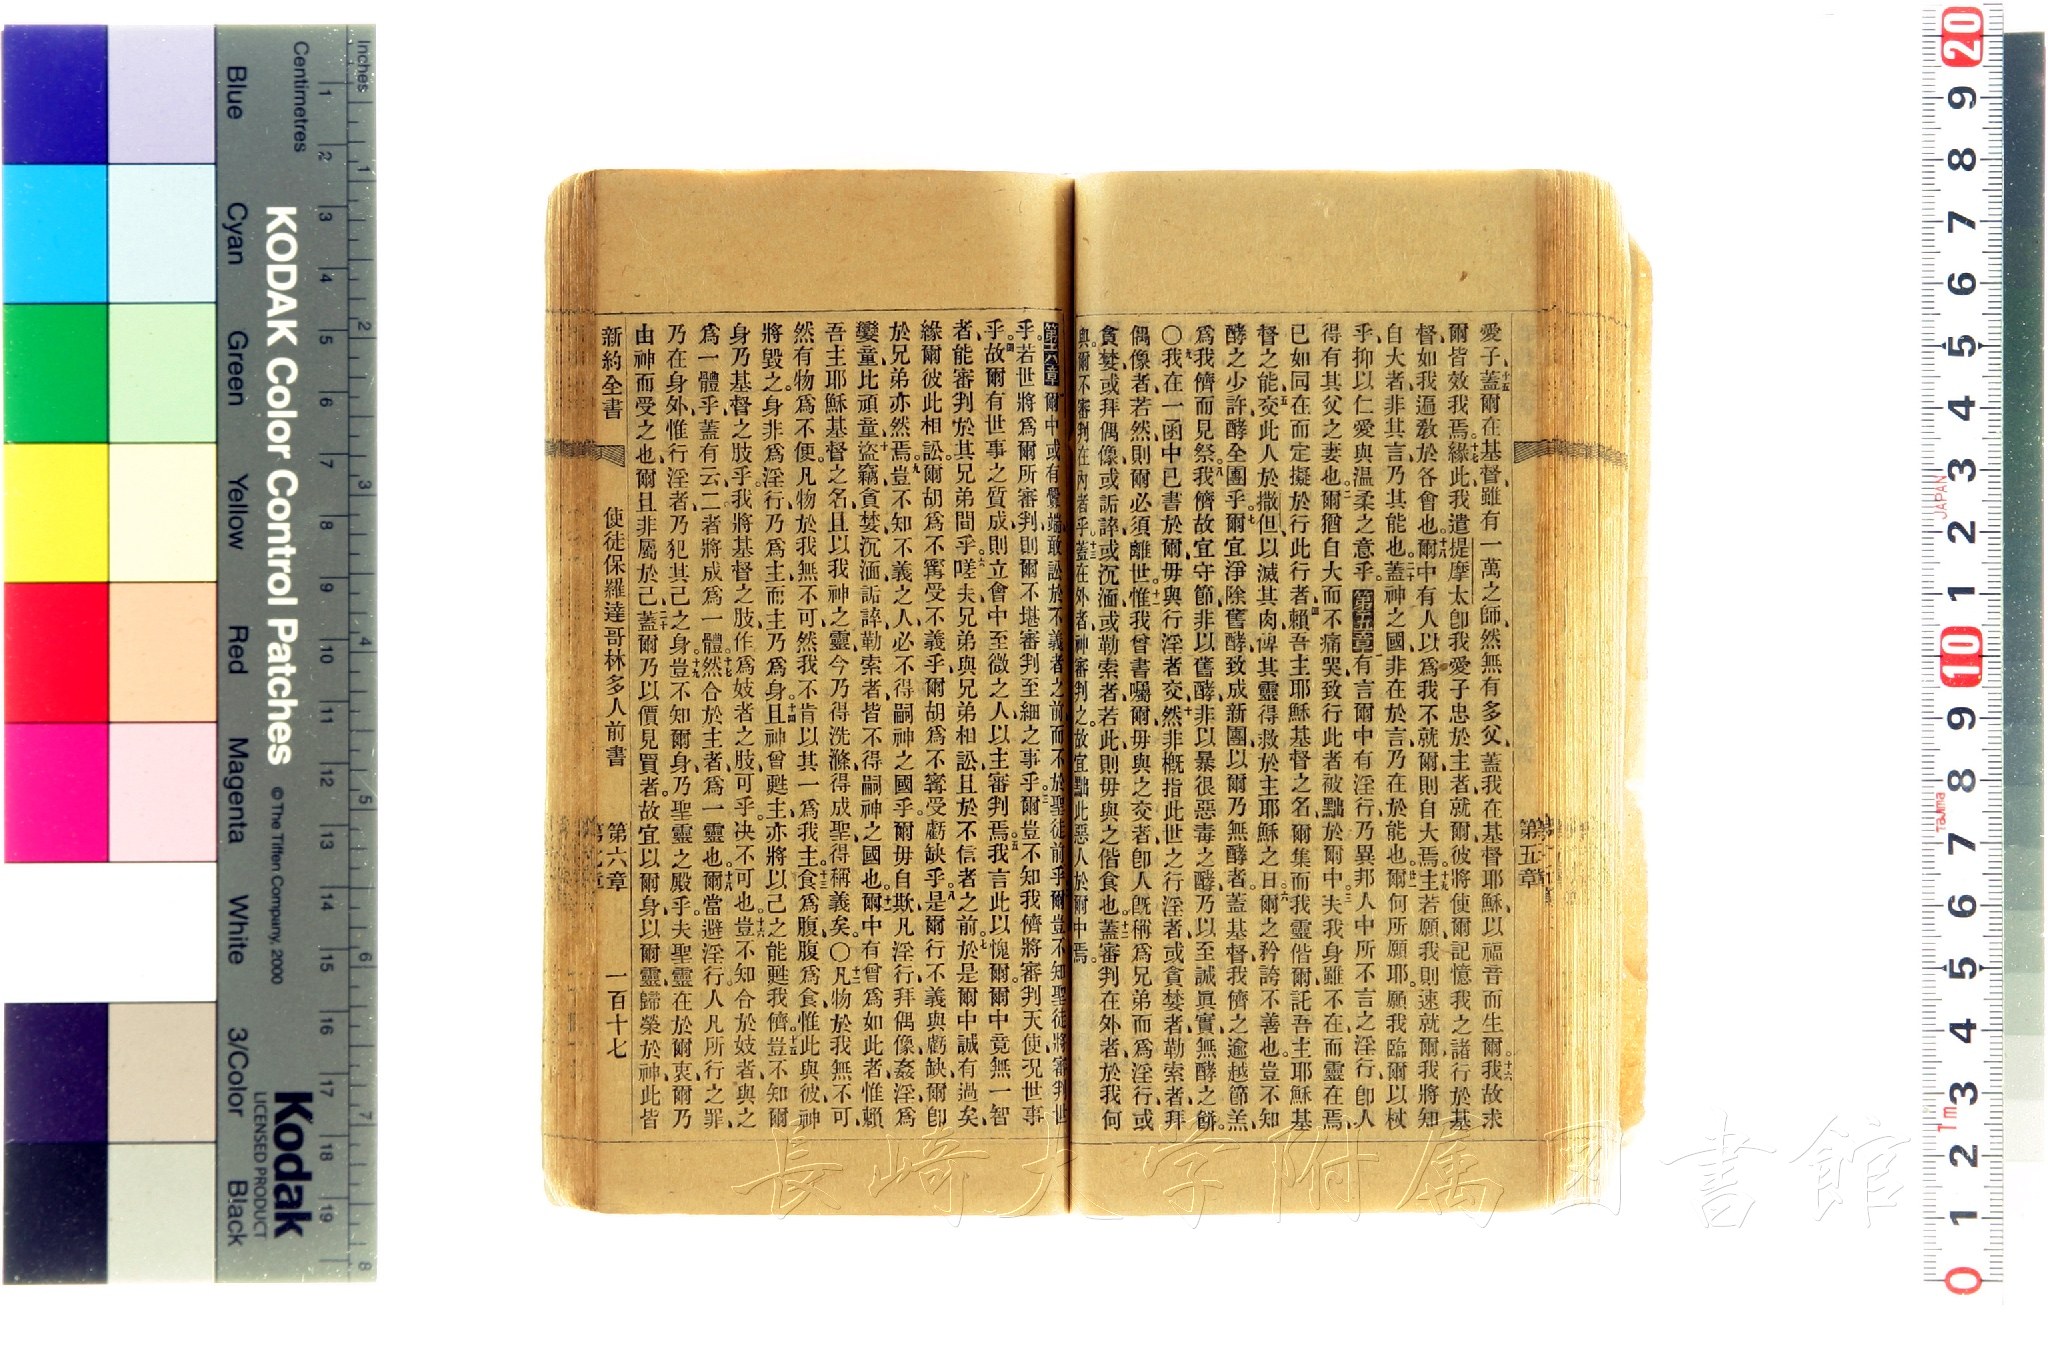 愛子、十五蓋爾在基督、雖有一萬之師、然無有多父、蓋我在基督耶穌以福音而生爾、十六我故求
爾皆效我焉、十七緣此、我遣提摩太、卽我愛子忠於主者、就爾、彼將使爾記憶我之諸行於基
督、如我遍教於各會也、十八爾中有人以爲我不就爾、則自大焉、十九主若願、我則速就爾、我將知
自大者、非其言、乃其能也、二十蓋神之國、非在於言、乃在於能也、廿一爾何所願耶、願我臨爾以杖
乎、抑以仁愛與溫柔之意乎、第五章有言爾中有淫行、乃異邦人中所不言之淫行、卽人
得有其父之妻也、二爾猶自大、而不痛哭、致行此者被黜於爾中、三夫我身雖不在而靈在焉、
已如同在、而定擬於行此行者、四賴吾主耶穌基督之名、爾集而我靈偕爾託吾主耶穌基
督之能、五交此人於撒但、以滅其肉、俾其靈得救於主耶穌之日、六爾之矜誇不善也、豈不知
酵之少許、酵全團乎、七爾宜淨除舊酵、致成新團、以爾乃無酵者、蓋基督我儕之逾越節羔、
爲我儕而見祭、八我儕故宜守節、非以舊酵、非以暴很惡毒之酵、乃以至誠眞實無酵之餅、
〇九我在一函中已書於爾、毋與行淫者交、十然非概指此世之行淫者、或貪婪者、勒索者、拜
偶像者、若然、則爾必須離世、十一惟我曾書囑爾毋與之交者、卽人既稱爲兄弟而爲淫行、或
貪婪、或拜偶像、或詬誶、或沉湎、或勒索者、若此則毋與之偕食也、十二蓋審判在外者、於我何
與、爾不審判在內者乎、十三蓋在外者、神審判之、故宜黜此惡人於爾中焉、
第五章
第六章爾中或有釁端、敢訟於不義者之前、而不於聖徒前乎、爾豈不知聖徒將審判世
乎、若世將爲爾所審判、則爾不堪審判至細之事乎、三爾豈不知我儕將審判天使、况世事
乎、四故爾有世事之質成、則立會中至微之人以主審判焉、五我言此以愧爾、爾中竟無一智
者、能審判於其兄弟間乎、六嗟夫、兄弟與兄弟相訟、且於不信者之前、七於是爾中誠有過矣、
緣爾彼此相訟、爾胡爲不寗受不義乎、爾胡爲不寗受虧缺乎、八是爾行不義與虧缺、爾卽
於兄弟亦然焉、九豈不知不義之人必不得嗣神之國乎、爾毋自欺、凡淫行、拜偶像、姦淫、爲
孌童、比頑童、十盜竊、貪婪、沉湎、詬誶、勒索者、皆不得嗣神之國也、十一爾中有曾爲如此者、惟賴
吾主耶穌基督之名、且以我神之靈、今乃得洗滌、得成聖、得稱義矣、〇十二凡物於我無不可、
然有物爲不便、凡物於我無不可、然我不肯以其一爲我主、十三食爲腹、腹爲食、惟此與彼神
將毀之、身非爲淫行、乃爲主、而主乃爲身、十四且神曾甦主、亦將以己之能甦我儕、十五豈不知爾
身乃基督之肢乎、我將基督之肢作爲妓者之肢可乎、决不可也、十六豈不知合於妓者、與之
爲一體乎、蓋有云、二者將成爲一體、十七然合於主者、爲一靈也、十八爾當避淫行、人凡所行之罪、
乃在身外、惟行淫者、乃犯其己之身、十九豈不知爾身乃聖靈之殿乎、夫聖靈在於爾衷、爾乃
由神而受之也、爾且非屬於己、二十蓋爾乃以價見買者、故宜以爾身以爾靈歸榮於神、此皆
新約全書 使徒保羅達哥林多人前書 第六章 一百十七
KODAK Color Control Patches
© The Tiffen Company, 2000
Kodak
LICENSED PRODUCT
Inches 1 2 3 4 5 6 7 8
Centimetres 1 2 3 4 5 6 7 8 9 10 11 12 13 14 15 16 17 18 19
Blue
Cyan
Green
Yellow
Red
Magenta
White
3/Color
Black
20 9 8 7 6 5 4 3 2 1 10 9 8 7 6 5 4 3 2 1 0
JAPAN
Tajima
Tm
長崎大学附属図書館